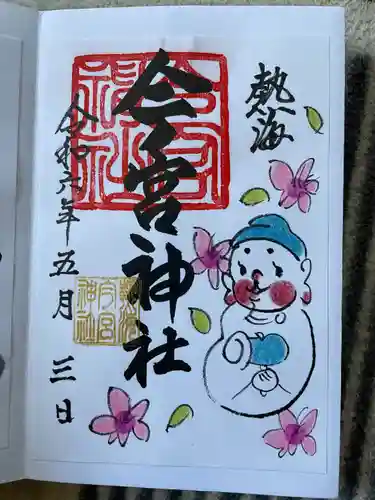 熱海
今宮神社
令和六年五月三日
今宮神社
熱海今宮神社